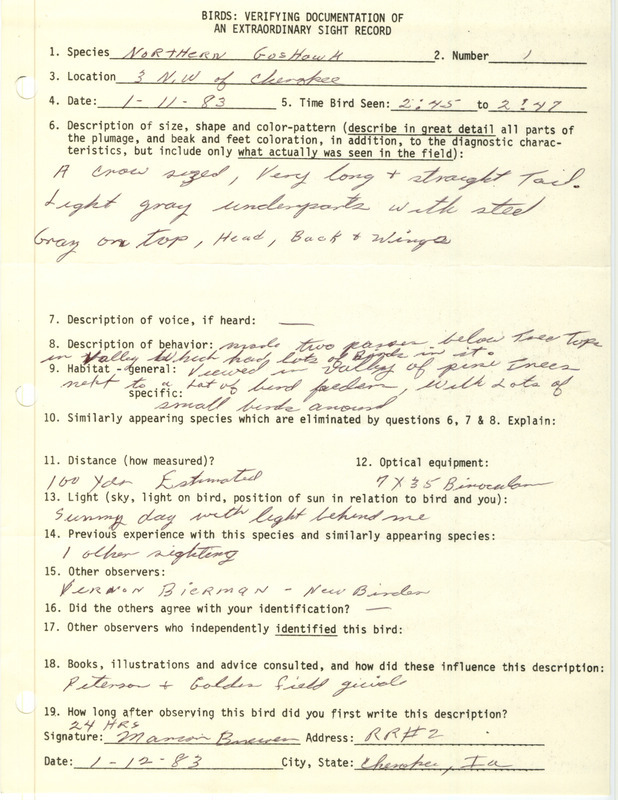 BIRDS: VERIFYING DOCUMENTATION OF
AN EXTRAORDINARY SIGHT RECORD
1. Species Northern Goshawk 2. Number 1
3. Location 3 N.W of Cherokee
4. Date: 1-11-83 5. Time Bird Seen: 2:45 to 2:47
6. Description of size, shape and color-pattern (describe in great detail all parts of
the plumage, and beak and feet coloration, in addition, to the diagnostic charac-
teristics, but include only what actually was seen in the field):
A crow sized, Very long + straight Tail.
Light gray underparts with steel
Gray on top, Head, Back + Wings
7. Description of voice, if heard: —
8. Description of behavior: made two passes below tree tops
in Valley which had lots of Birds in it.
9. Habitat - general: Viewed in Valley of pine trees
next to a Lot of bird feeders, with Lots of
specific:
small birds around
10. Similarly appearing species which are eliminated by questions 6, 7 & 8. Explain:
11. Distance (how measured)? 12. Optical equipment:
100 Yds Estimated 7 X 35 Binoculars
13. Light (sky, light on bird, position of sun in relation to bird and you):
Sunny day with light behind me
14. Previous experience with this species and similarly appearing species:
1 other sighting
15. Other observers:
Vernon Bierman - New Birder
16. Did the others agree with your identification? —
17. Other observers who independently identified this bird:
18. Books, illustrations and advice consulted, and how did these influence this description:
Peterson + Golden field guide
19. How long after observing this bird did you first write this description?
24 HRS
Signature: Address: RR#2
Date: 1-12-83 City, State: Cherokee, Ia